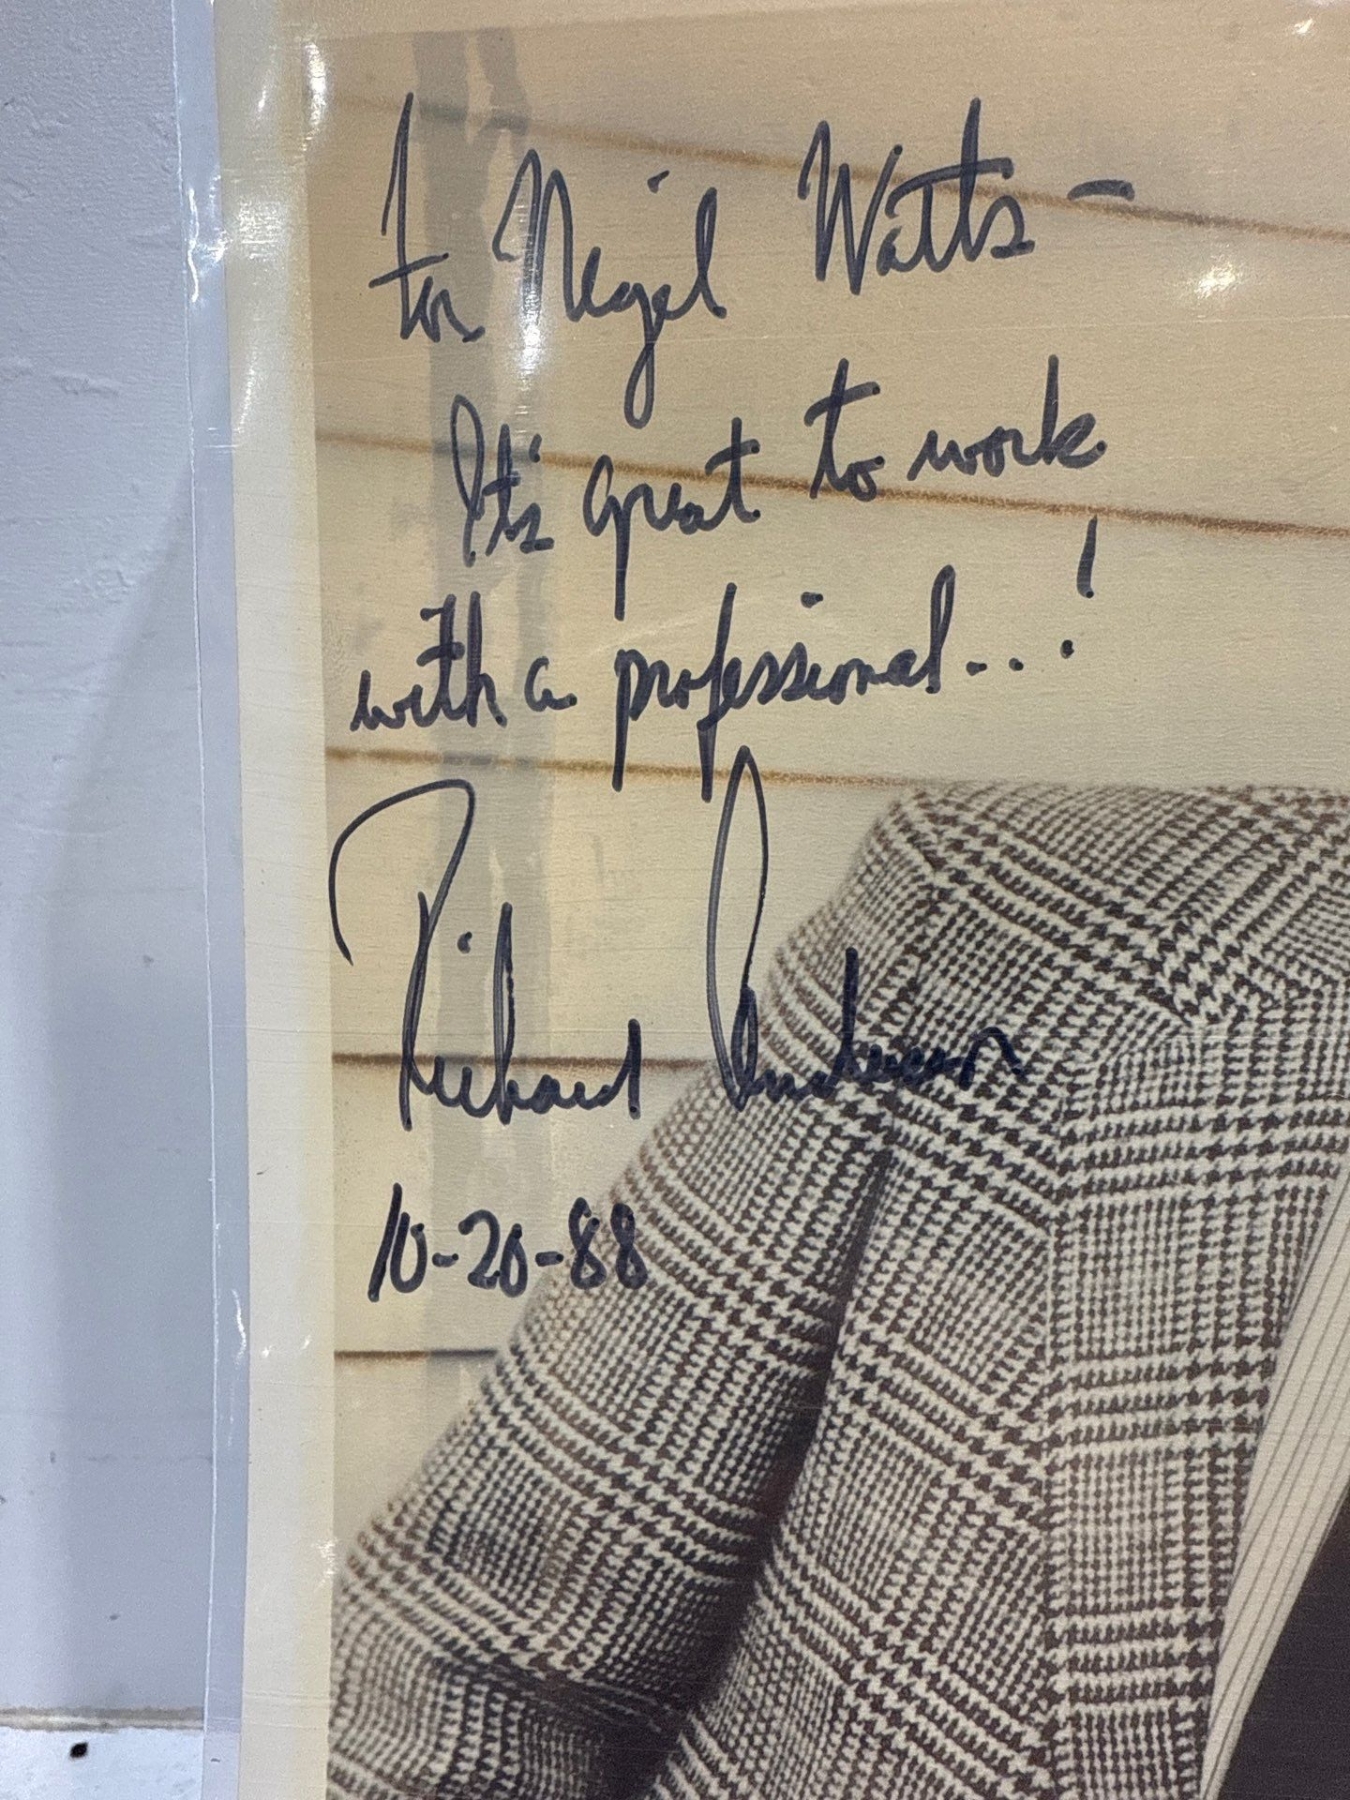 For Nigel Watts —
It's great to work
with a professional...!
Richard Anderson
10-20-88